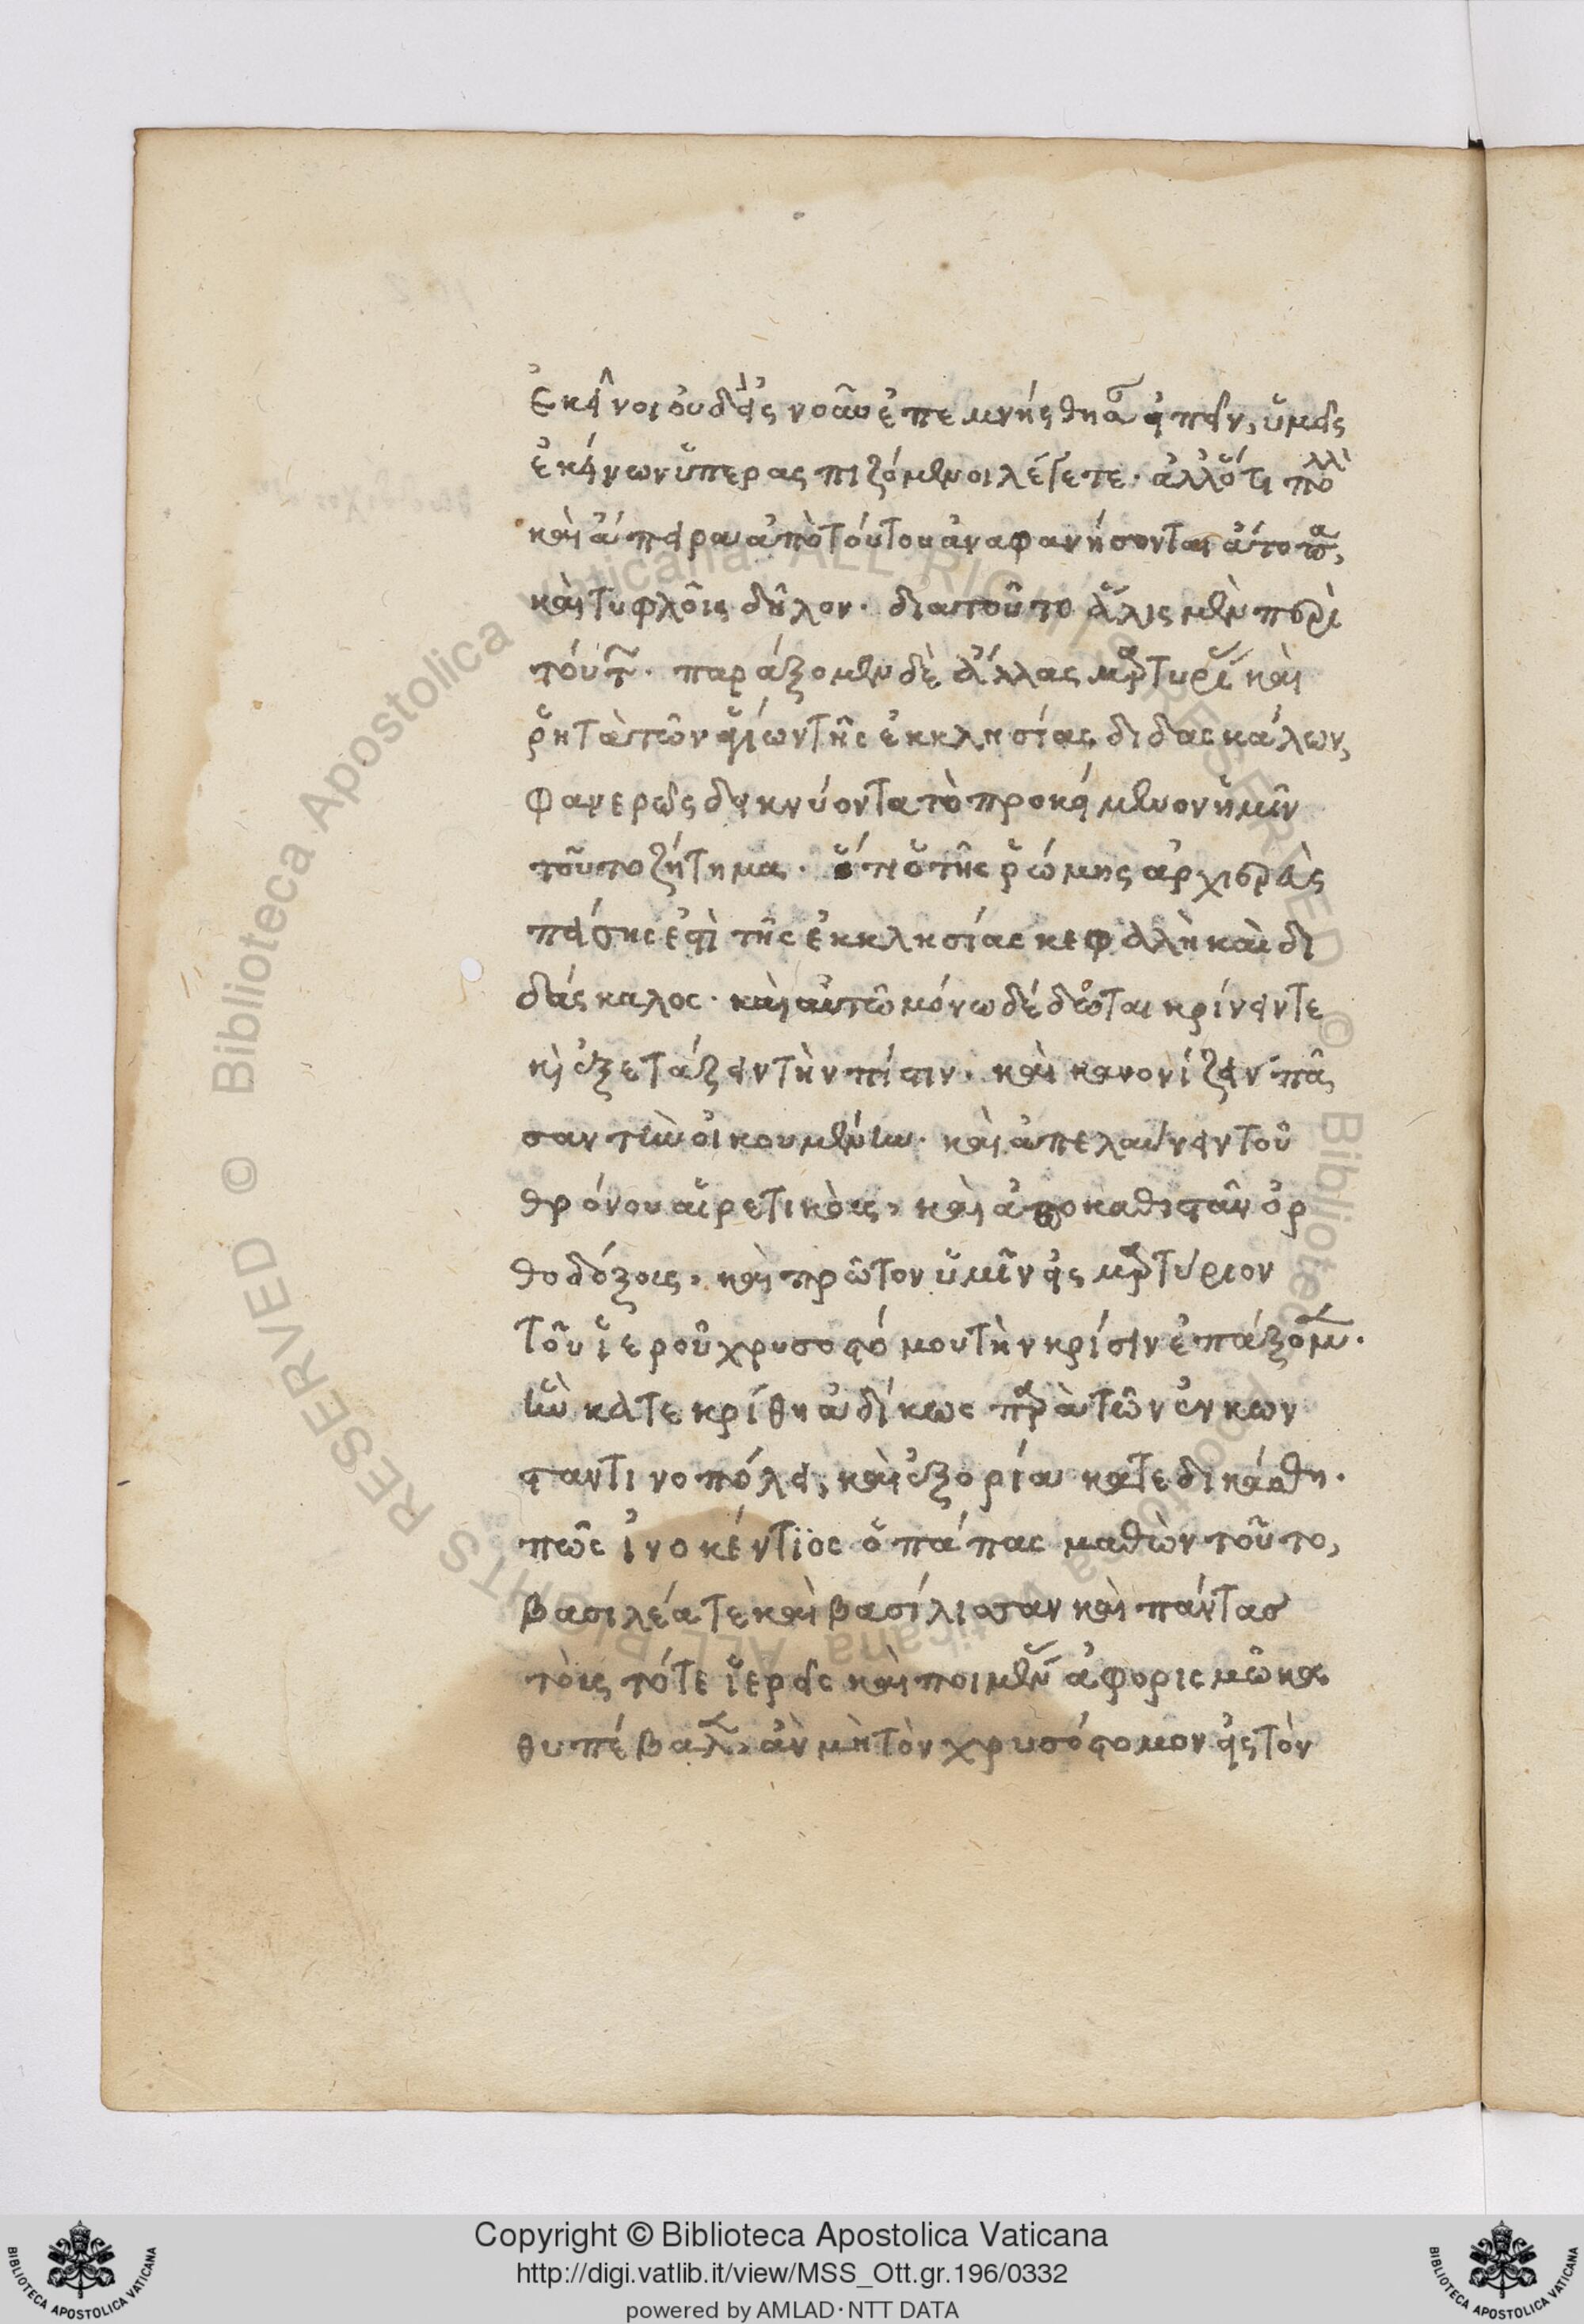 ἐκεῖνοι οὐδεὶς νοῦν ἐπεμνήσθη εἰπεῖν, ὑμεῖς
ἐκείνων ὑπερασπιζόμενοι λέγετε. ἀλλ' ὅτι πολλὰ
καὶ ἄπειρα ἀπὸ τούτου ἀναφανήσονται ἄτοπα,
καὶ τυφλοῖς δῆλον. διατοῦτο ἅλις μὲν περὶ
τούτων. παράξομεν δὲ ἄλλας μαρτυρίας καὶ
ῥητὰ τῶν ἁγίων τῆς ἐκκλησίας διδασκάλων,
φανερῶς δεικνύοντα τὸ προκείμενον ἡμῖν
τοῦτο ζήτημα. ὅτι ὁ τῆς ῥώμης ἀρχιερεὺς
πάσης ἐστὶ τῆς ἐκκλησίας κεφαλὴ καὶ δι
δάσκαλος. καὶ αὐτῶ μόνω δέδοται κρίνειν τε
κὶ ἐξετάζειν τὴν πίστιν. καὶ κανονίζειν πᾶ
σαν τὴν οἰκουμένην. καὶ ἀπελαύνειν τοῦ
θρόνου αἱρετικοὺς, καὶ ἀποκαθιστᾶν ὀρ
θοδόξους, καὶ πρῶτον ὑμῖν εἰς μαρτύριον
τοῦ ἱεροῦ χρυσοστόμου τὴν κρίσιν ἐπάξομεν.
ἣν κατεκρίθη ἀδίκως παρὰ τῶν ἐν κων
σταντινοπόλει, καὶ ἐξορία κατεδικάσθη.
πῶς ἰνοκέντϊος ὁ πάπας μαθὼν τοῦτο,
βασιλέα τε καὶ βασίλισσαν καὶ πάντας
τοὺς τότε ἱερεῖς καὶ ποιμένας ἀφορισμῶ κα
θυπέβαλεν, ἂν μὴ τὸν χρυσόστομον εἰς τὸν
Copyright © Biblioteca Apostolica Vaticana
http://digi.vatlib.it/view/MSS_Ott.gr.196/0332
powered by AMLAD·NTT DATA